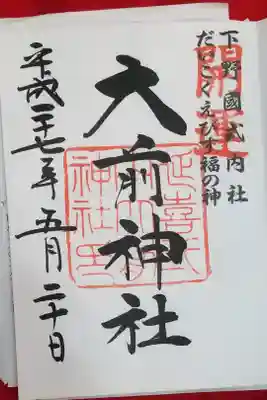 下野國式内社
だいこくえびす福の神
開運
大前神社
平成二十七年五月二十日